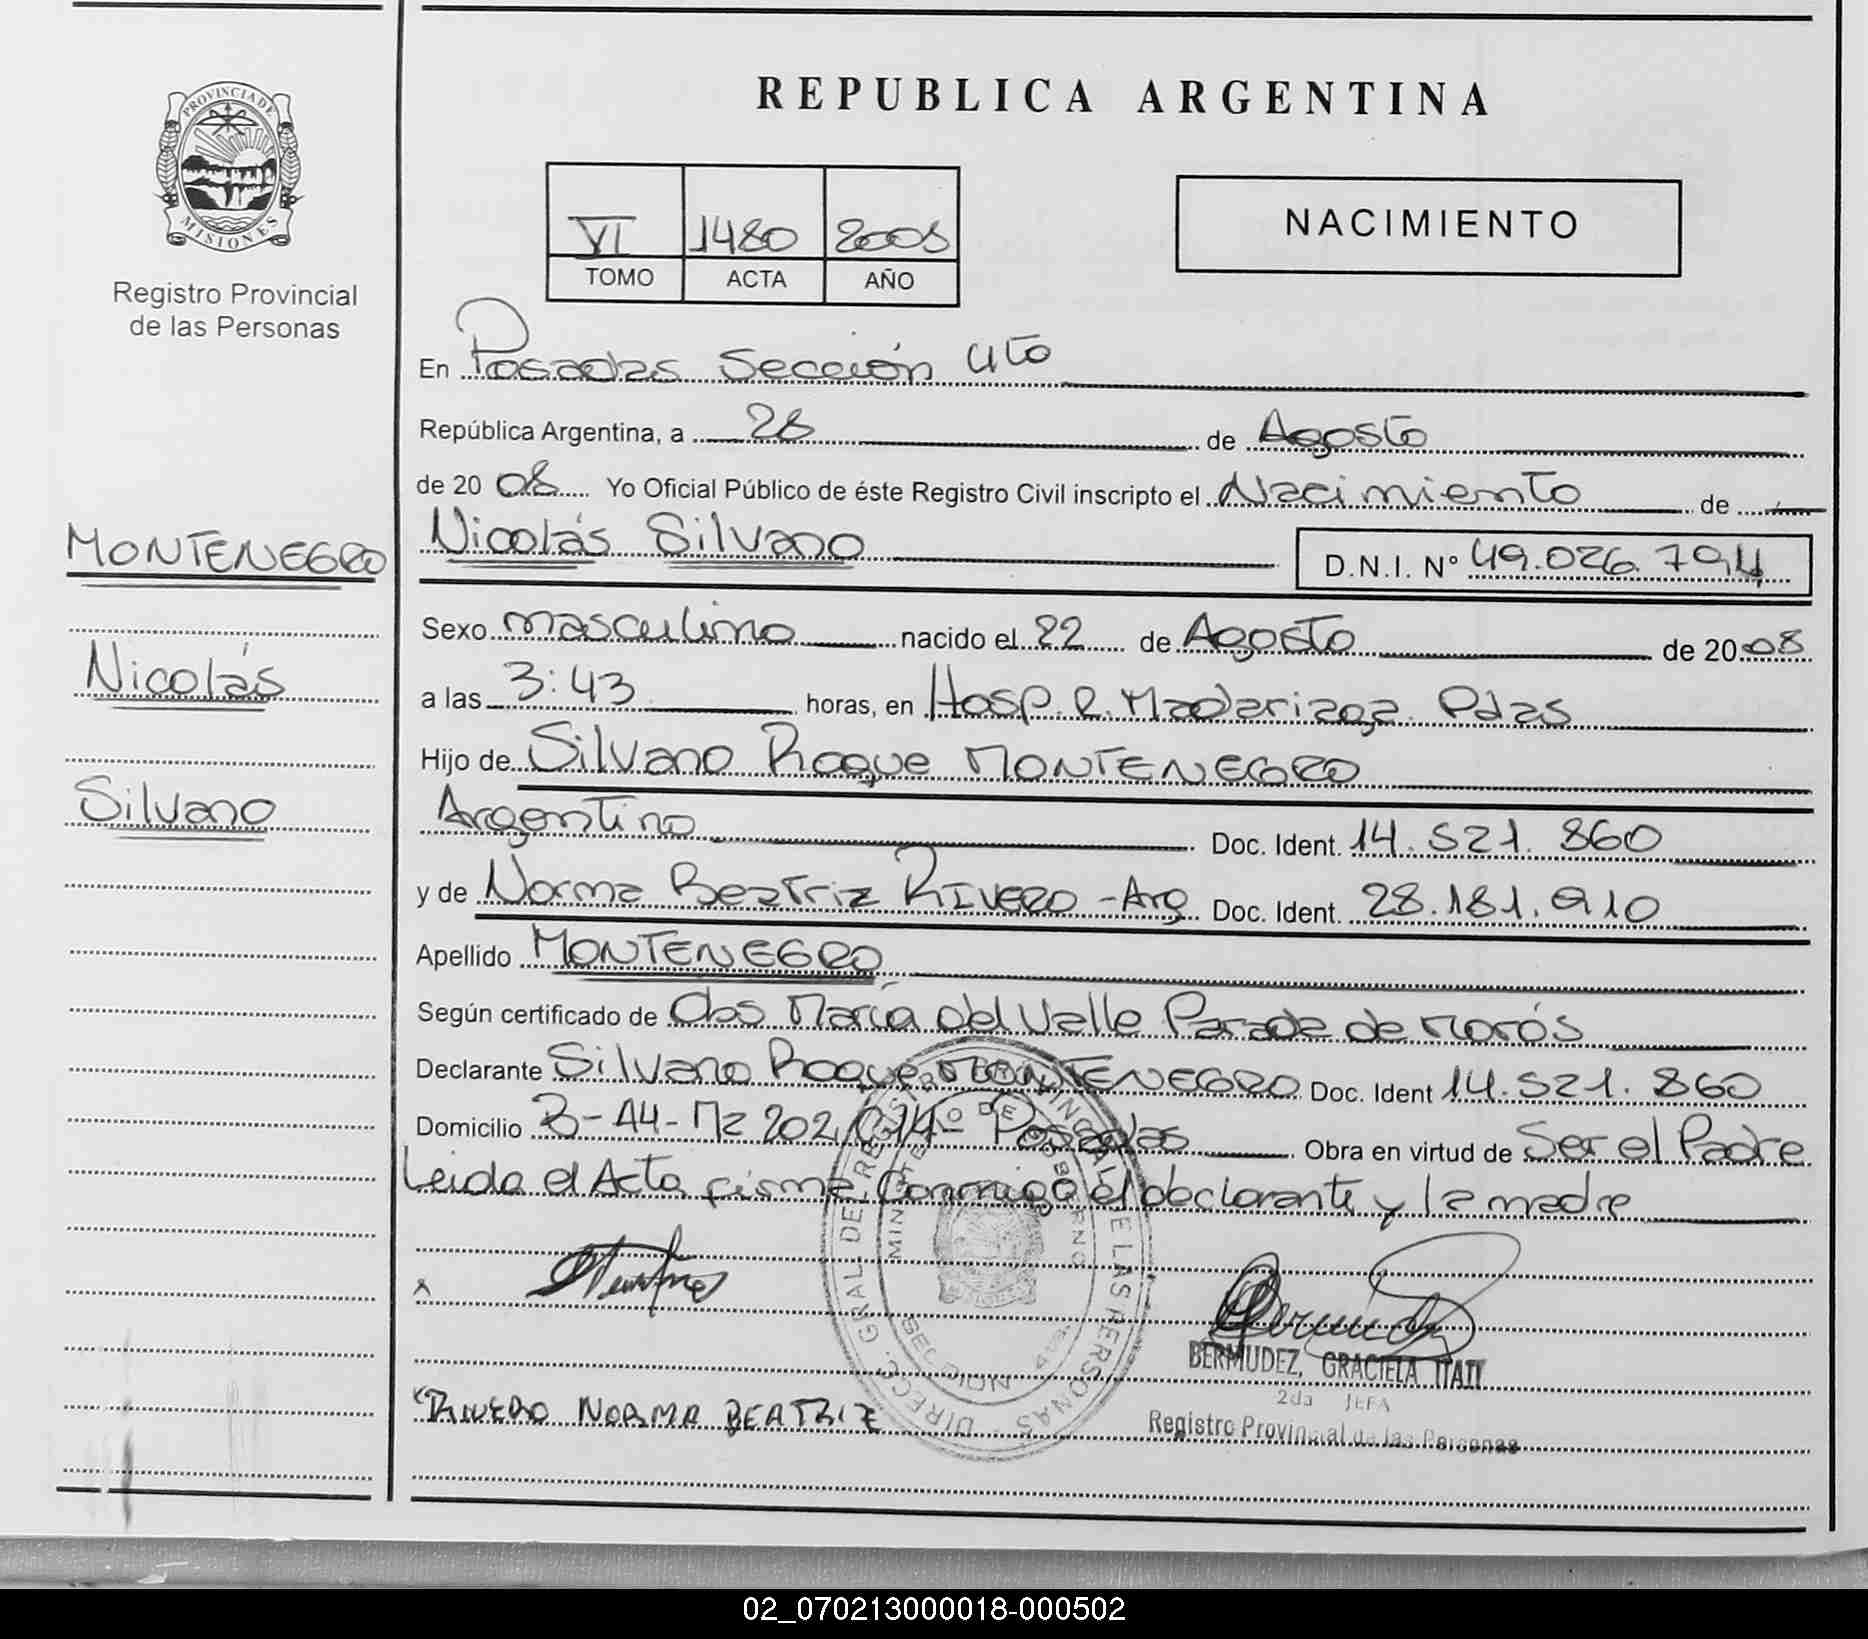 REPUBLICA ARGENTINA
PROVINCIA DE
MISIONES
Registro Provincial
de las Personas
VI 1480 2008
TOMO ACTA AÑO
NACIMIENTO
En Posadas Sección 4to
República Argentina, a 28 de Agosto
de 20 08 Yo Oficial Público de éste Registro Civil inscripto el Nacimiento de
MONTENEGRO
Nicolás
Silvano
Nicolás Silvano D.N.I. N° 49.026.794
Sexo masculino nacido el 22 de Agosto de 20 08
a las 3:43 horas, en Hosp. R. Madariaga Pdas
Hijo de Silvano Roque MONTENEGRO
Argentino Doc. Ident. 14.521.860
y de Norma Beatriz RIVERO - Arg Doc. Ident. 28.181.910
Apellido MONTENEGRO
Según certificado de Obs María del Valle Parada de Morós
Declarante Silvano Roque MONTENEGRO Doc. Ident 14.521.860
Domicilio B-A4- Mz 202 Posadas Obra en virtud de Ser el Padre
Leida el Acta firma conmigo el declarante y la madre
DIRECC. GRAL. DEL REGISTRO PROVINCIAL DE LAS PERSONAS
MINISTERIO DE GOBIERNO
SECCION
BERMUDEZ, GRACIELA ITATI
2da JEFA
Registro Provincial de las Personas
RIVERO NORMA BEATRIZ
02_070213000018-000502